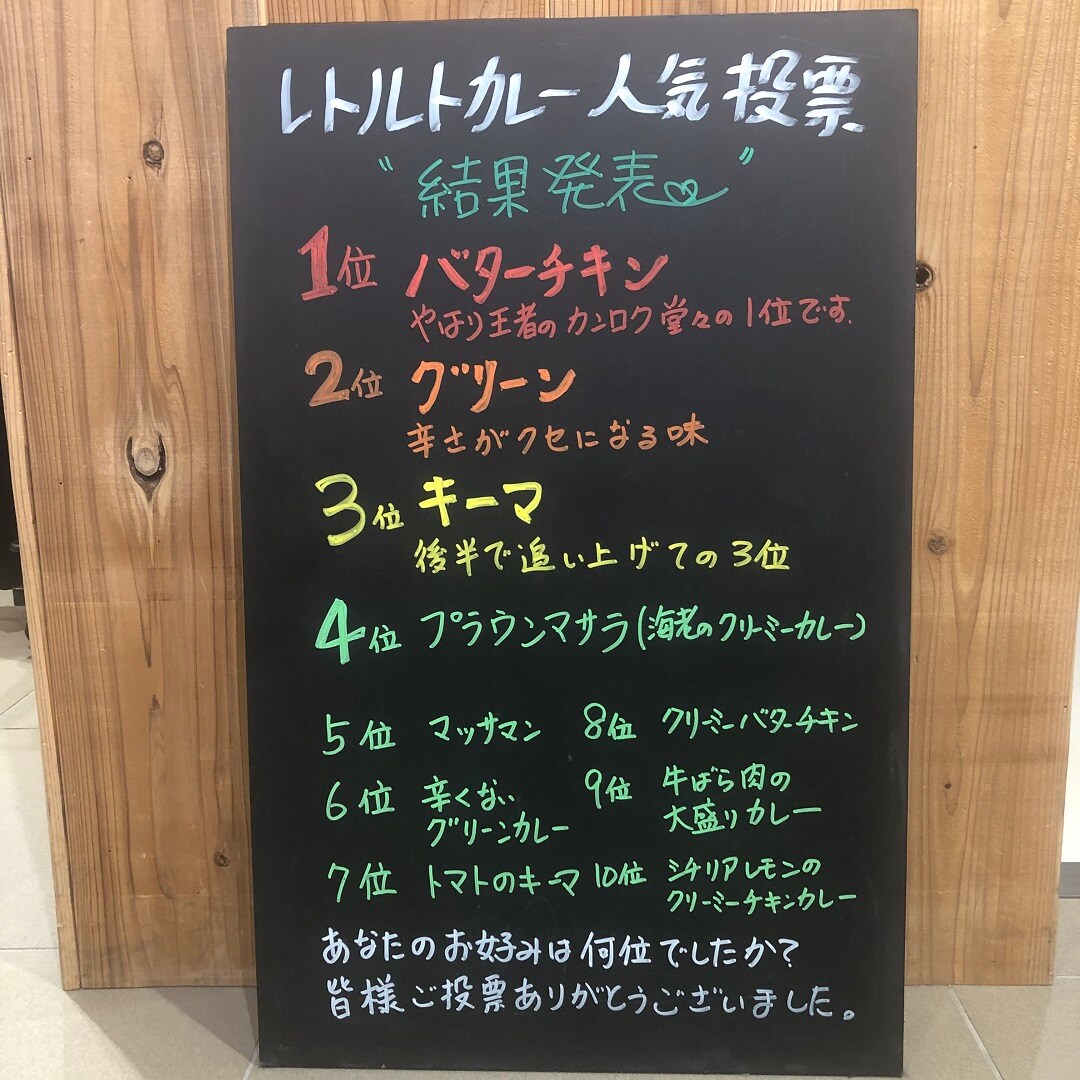 レトルトカレー人気投票
"結果発表"
1位 バターチキン
やはり王者のカンロク堂々の1位です.
2位 グリーン
辛さがクセになる味
3位 キーマ
後半で追い上げての3位
4位 プラウンマサラ(海老のクリーミーカレー)
5位 マッサマン
6位 辛くない
グリーンカレー
7位 トマトのキーマ
8位 クリーミーバターチキン
9位 牛ばら肉の
大盛りカレー
10位 シチリアレモンの
クリーミーチキンカレー
あなたのお好みは何位でしたか?
皆様ご投票ありがとうございました。